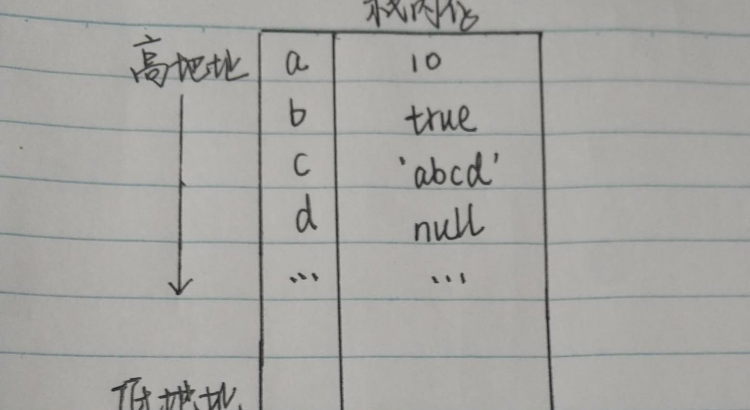 栈内存
高地址 a 10
b true
c 'abcd'
d null
... ...
低地址